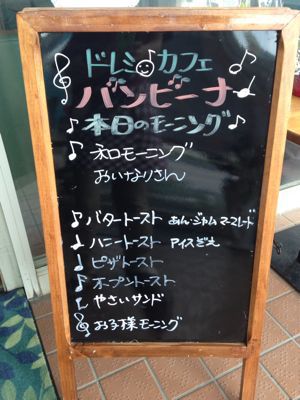 ドレミカフェ
バンビーナ
本日のモーニング
和モーニング
おいなりさん
バタートースト あん・ジャム マーマレード
ハニートースト アイス添え
ピザトースト
オープントースト
やさいサンド
お子様モーニング